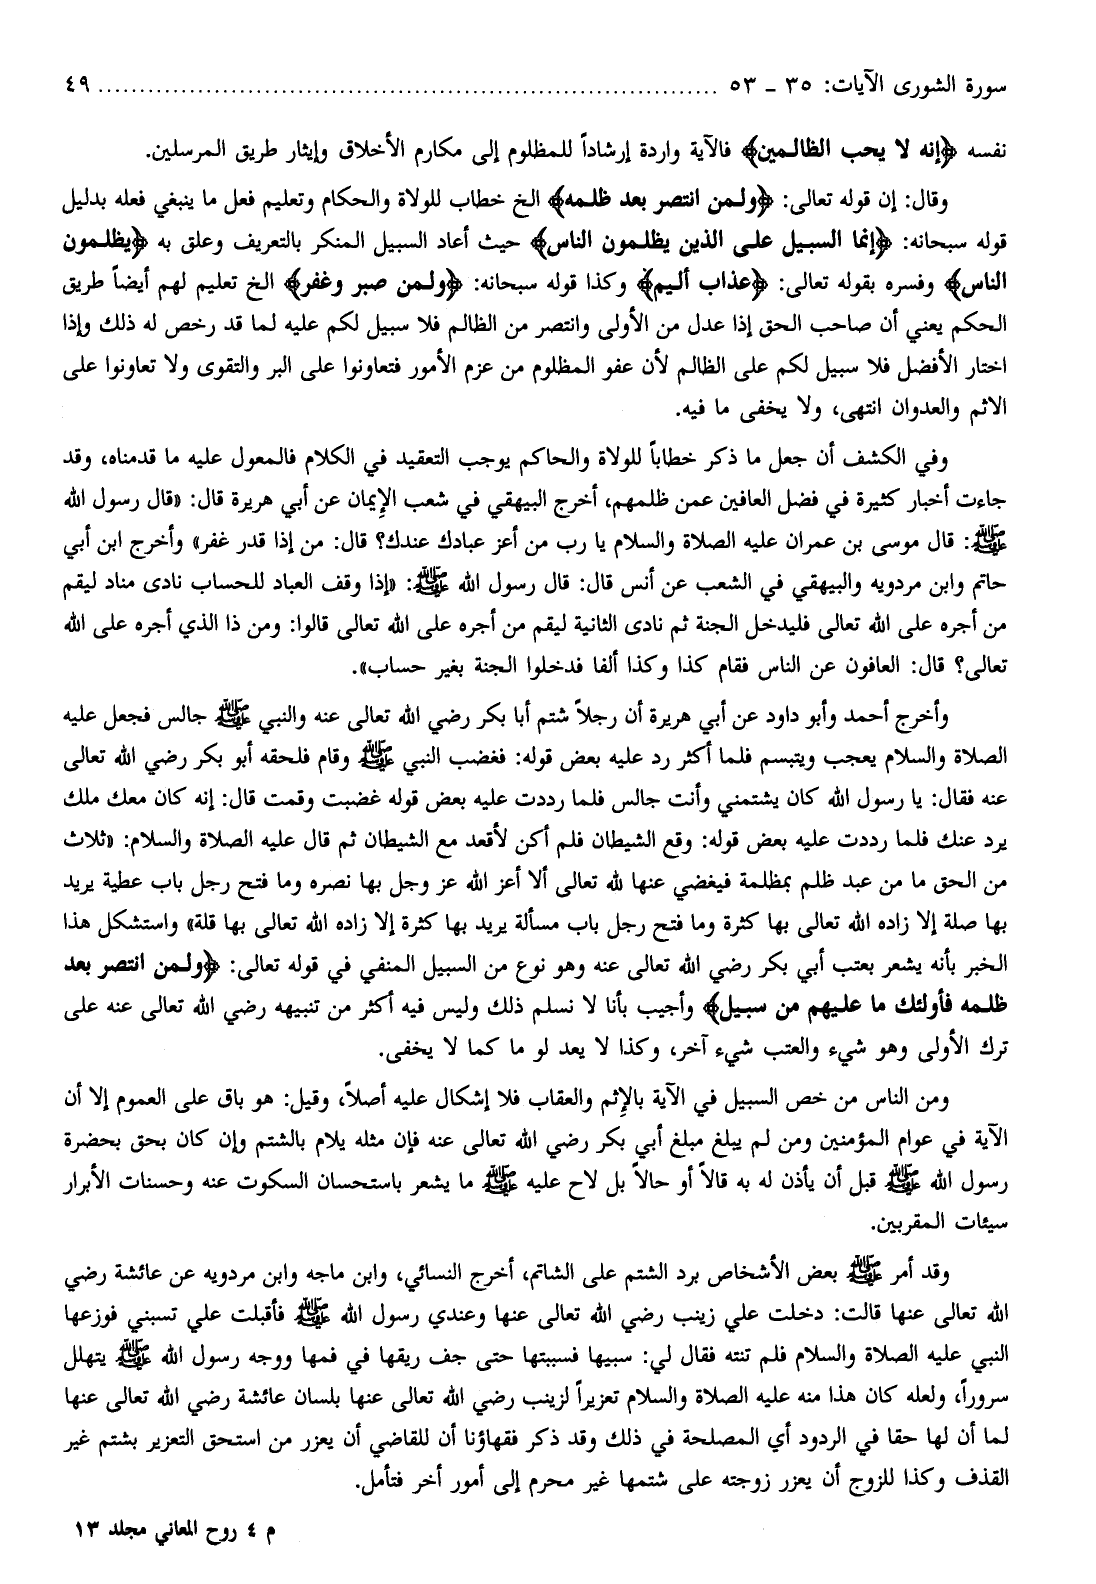 سورة الشورى الآيات: ٣٥ ـ ٥٣ ........................................................................ ٤٩
نفسه ﴿إنه لا يحب الظالـمين﴾ فالآية واردة إرشاداً للمظلوم إلى مكارم الأخلاق وإيثار طريق المرسلين.
وقال: إن قوله تعالى: ﴿ولـمن انتصر بعد ظلمه﴾ الخ خطاب للولاة والحكام وتعليم فعل ما ينبغي فعله بدليل
قوله سبحانه: ﴿إنما السبيل علـى الذين يظلـمون الناس﴾ حيث أعاد السبيل المنكر بالتعريف وعلق به ﴿يظلمون
الناس﴾ وفسره بقوله تعالى: ﴿عذاب ألـيم﴾ وكذا قوله سبحانه: ﴿ولـمن صبر وغفر﴾ الخ تعليم لهم أيضاً طريق
الحكم يعني أن صاحب الحق إذا عدل من الأولى وانتصر من الظالم فلا سبيل لكم عليه لما قد رخص له ذلك وإذا
اختار الأفضل فلا سبيل لكم على الظالم لأن عفو المظلوم من عزم الأمور فتعاونوا على البر والتقوى ولا تعاونوا على
الاثم والعدوان انتهى، ولا يخفى ما فيه.
وفي الكشف أن جعل ما ذكر خطاباً للولاة والحاكم يوجب التعقيد في الكلام فالمعول عليه ما قدمناه، وقد
جاءت أخبار كثيرة في فضل العافين عمن ظلمهم، أخرج البيهقي في شعب الإيمان عن أبي هريرة قال: «قال رسول الله
ﷺ: قال موسى بن عمران عليه الصلاة والسلام يا رب من أعز عبادك عندك؟ قال: من إذا قدر غفر» وأخرج ابن أبي
حاتم وابن مردويه والبيهقي في الشعب عن أنس قال: قال رسول الله ﷺ: «إذا وقف العباد للحساب نادى مناد ليقم
من أجره على الله تعالى فليدخل الجنة ثم نادى الثانية ليقم من أجره على الله تعالى قالوا: ومن ذا الذي أجره على الله
تعالى؟ قال: العافون عن الناس فقام كذا وكذا ألفا فدخلوا الجنة بغير حساب».
وأخرج أحمد وأبو داود عن أبي هريرة أن رجلاً شتم أبا بكر رضي الله تعالى عنه والنبي ﷺ جالس فجعل عليه
الصلاة والسلام يعجب ويتبسم فلما أكثر رد عليه بعض قوله: فغضب النبي ﷺ وقام فلحقه أبو بكر رضي الله تعالى
عنه فقال: يا رسول الله كان يشتمني وأنت جالس فلما رددت عليه بعض قوله غضبت وقمت قال: إنه كان معك ملك
يرد عنك فلما رددت عليه بعض قوله: وقع الشيطان فلم أكن لأقعد مع الشيطان ثم قال عليه الصلاة والسلام: «ثلاث
من الحق ما من عبد ظلم بمظلمة فيغضي عنها لله تعالى ألا أعز الله عز وجل بها نصره وما فتح رجل باب عطية يريد
بها صلة إلا زاده الله تعالى بها كثرة وما فتح رجل باب مسألة يريد بها كثرة إلا زاده الله تعالى بها قلة» واستشكل هذا
الخبر بأنه يشعر بعتب أبي بكر رضي الله تعالى عنه وهو نوع من السبيل المنفي في قوله تعالى: ﴿ولـمن انتصر بعد
ظلـمه فأولئك ما علـيهم من سبيل﴾ وأجيب بأنا لا نسلم ذلك وليس فيه أكثر من تنبيهه رضي الله تعالى عنه على
ترك الأولى وهو شيء والعتب شيء آخر، وكذا لا يعد لو ما كما لا يخفى.
ومن الناس من خص السبيل في الآية بالإثم والعقاب فلا إشكال عليه أصلاً، وقيل: هو باق على العموم إلا أن
الآية في عوام المؤمنين ومن لم يبلغ مبلغ أبي بكر رضي الله تعالى عنه فإن مثله يلام بالشتم وإن كان بحق بحضرة
رسول الله ﷺ قبل أن يأذن له به قالاً أو حالاً بل لاح عليه ﷺ ما يشعر باستحسان السكوت عنه وحسنات الأبرار
سيئات المقربين.
وقد أمر ﷺ بعض الأشخاص برد الشتم على الشاتم، أخرج النسائي، وابن ماجه وابن مردويه عن عائشة رضي
الله تعالى عنها قالت: دخلت علي زينب رضي الله تعالى عنها وعندي رسول الله ﷺ فأقبلت علي تسبني فوزعها
النبي عليه الصلاة والسلام فلم تنته فقال لي: سبيها فسببتها حتى جف ريقها في فمها ووجه رسول الله ﷺ يتهلل
سروراً، ولعله كان هذا منه عليه الصلاة والسلام تعزيراً لزينب رضي الله تعالى عنها بلسان عائشة رضي الله تعالى عنها
لما أن لها حقا في الردود أي المصلحة في ذلك وقد ذكر فقهاؤنا أن للقاضي أن يعزر من استحق التعزير بشتم غير
القذف وكذا للزوج أن يعزر زوجته على شتمها غير محرم إلى أمور أخر فتأمل.
م ٤ روح المعاني مجلد ١٣